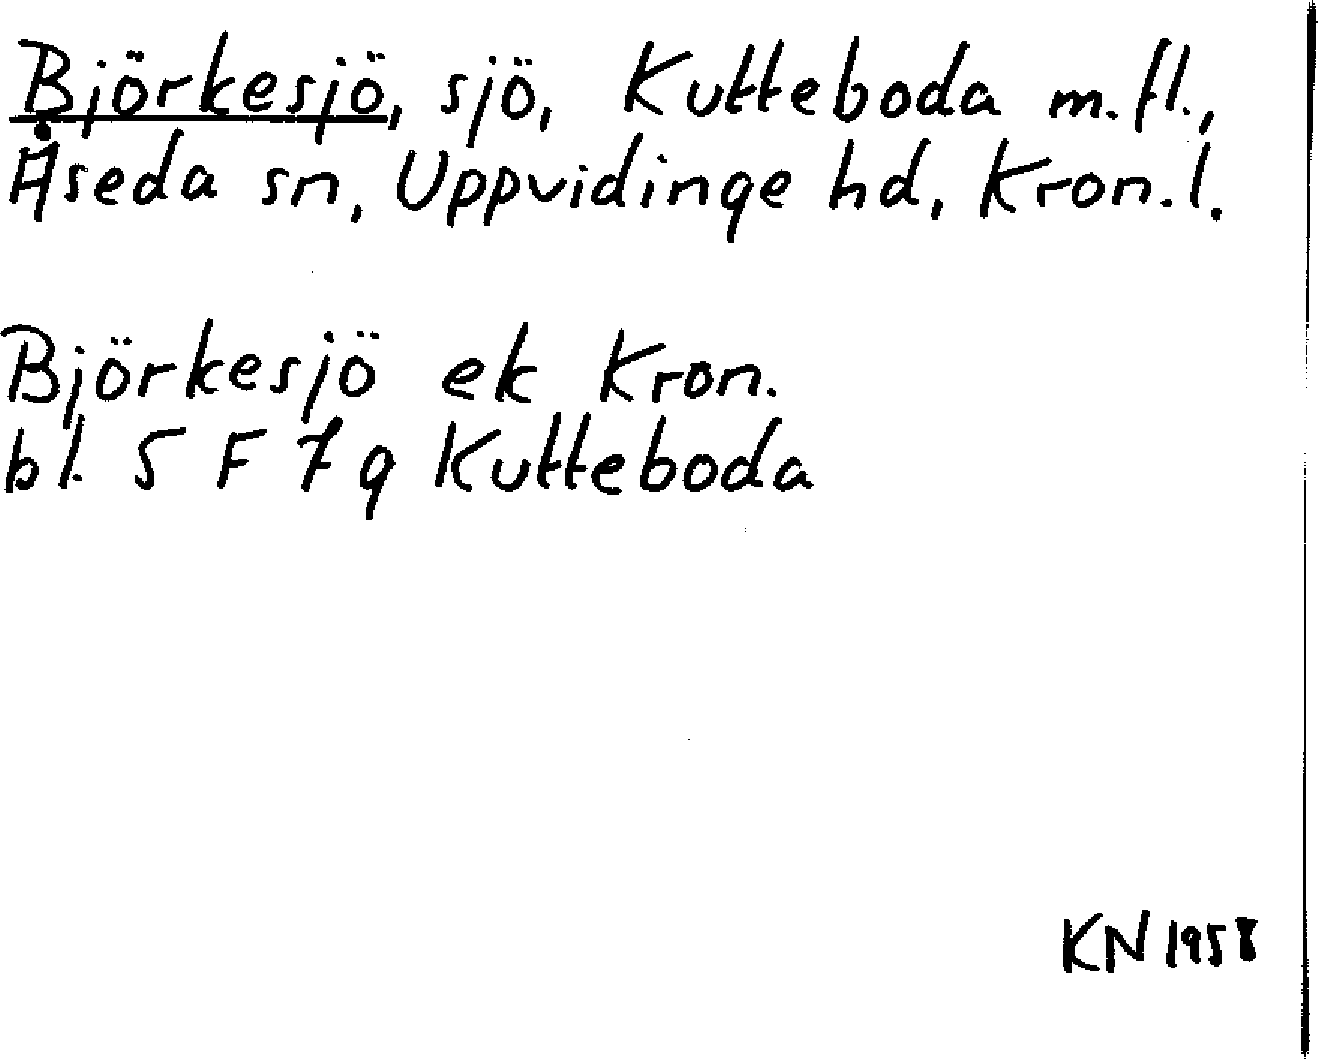 Björkesjö, sjö, Kutteboda m.fl.,
Åseda sn, Uppvidinge hd, Kron.l.
Björkesjö ek Kron.
bl. 5 F 7 g Kutteboda
KN 1958